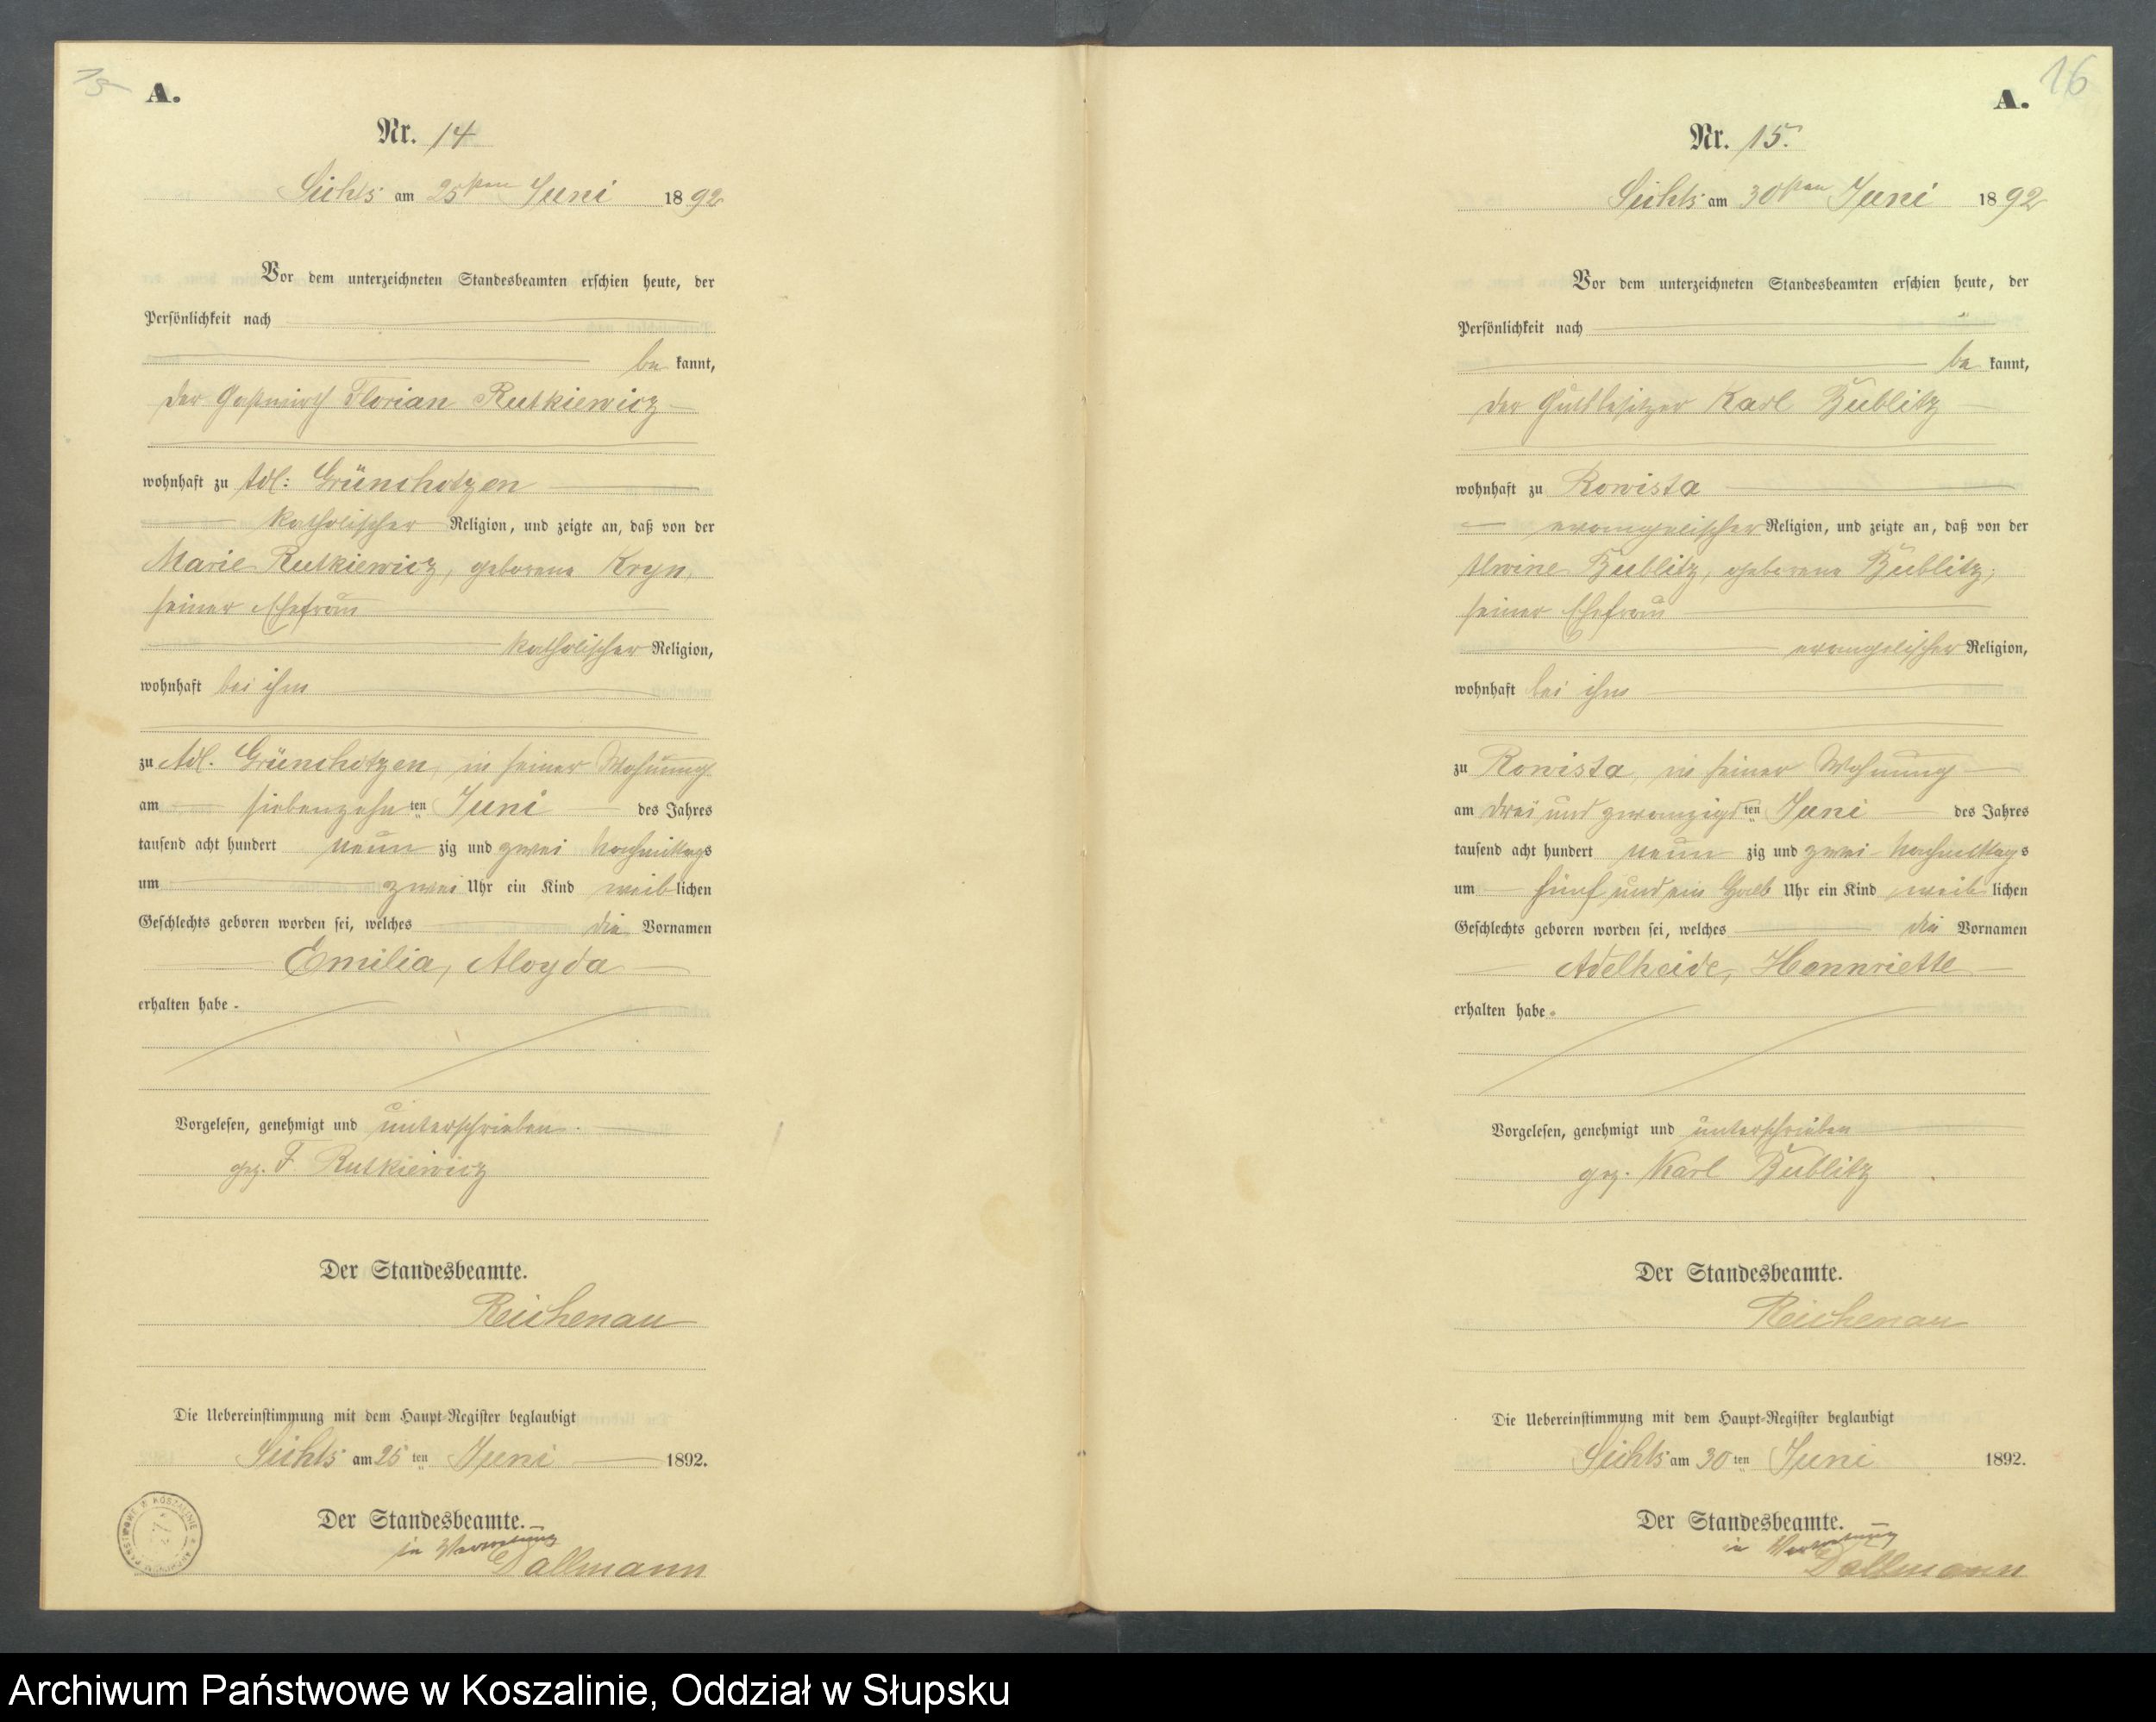 15
A.
Nr. 14
Lichts am 25sten Juni 1892
Vor dem unterzeichneten Standesbeamten erschien heute, der
Persönlichkeit nach
be kannt,
der Gastwirth Florian Rutkiewicz
wohnhaft zu Adl: Grünchotzen
katholischer Religion, und zeigte an, daß von der
Marie Rutkiewicz, geborene Kryn,
seiner Ehefrau
katholischer Religion,
wohnhaft bei ihm
zu Adl. Grünchotzen, in seiner Wohnung
am siebenzehn ten Juni des Jahres
tausend acht hundert neun zig und zwei Nachmittags
um zwei Uhr ein Kind weib lichen
Geschlechts geboren worden sei, welches die Vornamen
Emilia, Aloyda
erhalten habe.
Vorgelesen, genehmigt und unterschrieben.
gez. F. Rutkiewicz
Der Standesbeamte.
Reichenau
Die Uebereinstimmung mit dem Haupt-Register beglaubigt
Lichts am 25 ten Juni 1892.
Der Standesbeamte.
in Vertretung
Dallmann
16
A.
Nr. 15.
Lichts am 30sten Juni 1892
Vor dem unterzeichneten Standesbeamten erschien heute, der
Persönlichkeit nach
be kannt,
der Gutsbesitzer Karl Bublitz
wohnhaft zu Rowista
evangelischer Religion, und zeigte an, daß von der
Alwine Bublitz, geborene Bublitz,
seiner Ehefrau
evangelischer Religion,
wohnhaft bei ihm
zu Rowista, in seiner Wohnung
am drei und zwanzigs ten Juni des Jahres
tausend acht hundert neun zig und zwei Nachmittags
um fünf und ein halb Uhr ein Kind weib lichen
Geschlechts geboren worden sei, welches die Vornamen
Adelheide, Hennriette
erhalten habe.
Vorgelesen, genehmigt und unterschrieben
gez. Karl Bublitz
Der Standesbeamte.
Reichenau
Die Uebereinstimmung mit dem Haupt-Register beglaubigt
Lichts am 30 ten Juni 1892.
Der Standesbeamte.
in Vertretung
Dallmann
Archiwum Państwowe w Koszalinie, Oddział w Słupsku